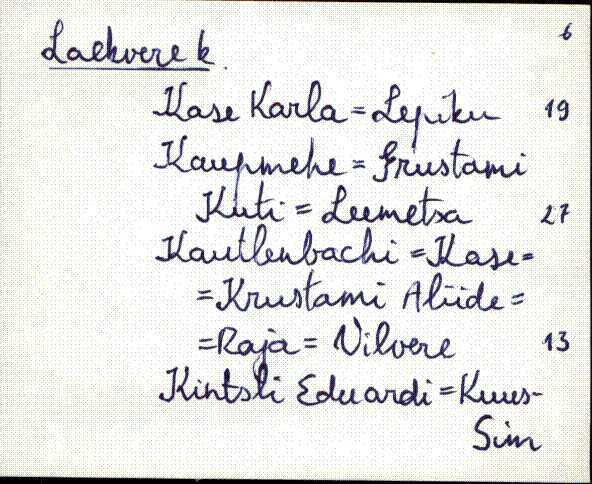 6
Laekvere k.
Kase Karla = Lepiku 19
Kaupmehe = Krustami
Kuti = Leemetsa 27
Kautlenbachi = Kase =
= Krustami Aliide =
= Raja = Vilvere 13
Kintsli Eduardi = Kuus-
Sim